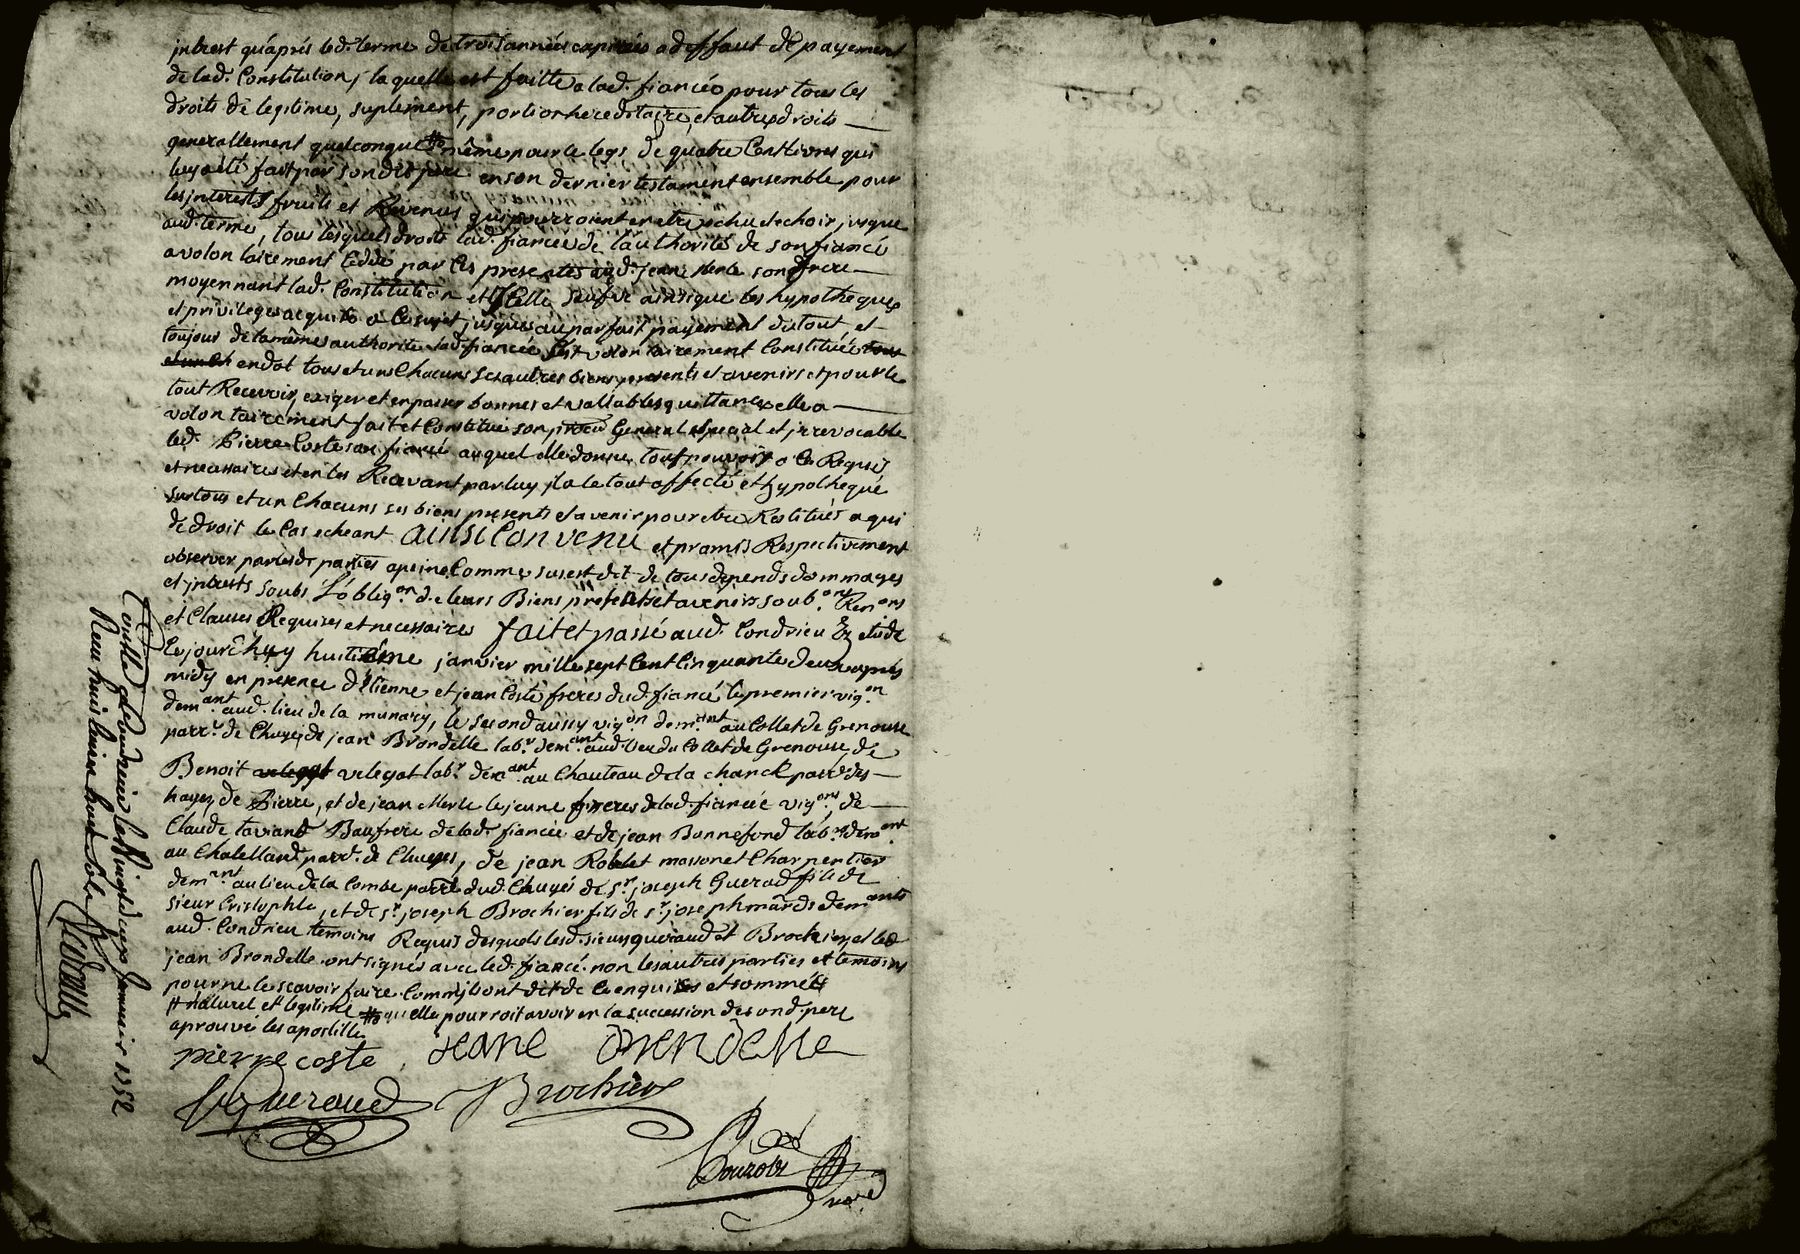 jnterest qu'aprés led. terme de trois années expirées a deffaut de payement
de lad. Constitution, la quelle est faitte a lad. fiancéé pour tous les
droits de legitime, suplement, portion hereditaire, et autres droits
generallement quelconque # même pour le legs de quatre Cent livres qui
luy a été fait par son dit pere en son dernier testament ensemble pour
les jnterests fruits et Revenus qui pourroient en etre echu et echoir jusque
aud. terme, tous lesquels droits lad. fiancéé de l'authorité de son fiancé
a volontairement cedé par les presentes aud. jean merle son frere
moyennant lad. Constitution et jcelle sauf ainsi que les hypotheques
et privileges acquits a ce sujet jusques au parfait payement du tout, et
toujour de la même authorité lad. fiancéé s'est volontairement Constituéé
en dot tous et uns Chacuns ses autres biens presents et avenirs et pour le
tout Recevoir, exiger et en passer bonnes et vallables quittances elle a
volontairement fait et Constitué son General special et jrrevocable
led. Pierre Coste son fiancé auquel elle donne tout pouvoir a ce Requis
et necessaires et en les Recevant par luy jl a le tout affecté et hypothequé
sur tous et un Chacuns ses biens presents et avenir pour etre Restitués a qui
de droit le Cas echeant. ainsi Convenu et promis Respectivement
observer par lesd. parties a peine Comme sus est dit de tous depends dommages
et jnterests soubs l'oblig.on de leurs Biens presents et avenirs soub.on Ren.ons
et Clauses Requises et necessaires fait et passé aud. Condrieu étude
Ce jour d'huy huitiéme janvier mille sept Cent Cinquante deux aprés
midy en presence d'étienne et jean Coste freres dud. fiancé le premier vig.on
dem.ant aud. lieu de la munary, le second aussy vig.on dem.ant au Collet de Grenouse
parr.e de Chuyes, de jean Brondelle lab.r dem.ant aud. lieu du Collet de Grenouse, de
Benoit velegat lab.r dem.ant au Chauteau de la chanck parr.e des
hayes, de Pierre, et de jean Merle le jeune freres de lad. fiancéé vig.ons, de
Claude Baufrere de lad. fiancéé et de jean Bonnefond lab.rs dem.ant
au Chatellard parr.e de Chuyes, de jean Roblet masson et Charpentier
dem.ant au lieu de la Combe parr.e dud. Chuyes de S.r joseph Gueraud fils de
sieur Cristophle, et de S.r joseph Brochier fils de S.r joseph mards dem.ants
aud. Condrieu temoins Requis desquels lesd. sieurs Gueraud et Brochier, et led.
jean Brondelle ont signés avec led. fiancé. non les autres parties et temoins
pour ne le scavoir faire Comm' jls ont dit de ce enquises et sommés
# naturel et legitime # qu'elle pourroit avoir en la succession de son d. pere
aprouvé les apostille
pierre coste jeane Brendelle
Gueraud Brochier
Nore
Contlé a Condrieu le vingt deux Janvier 1752
Reçu huit livres